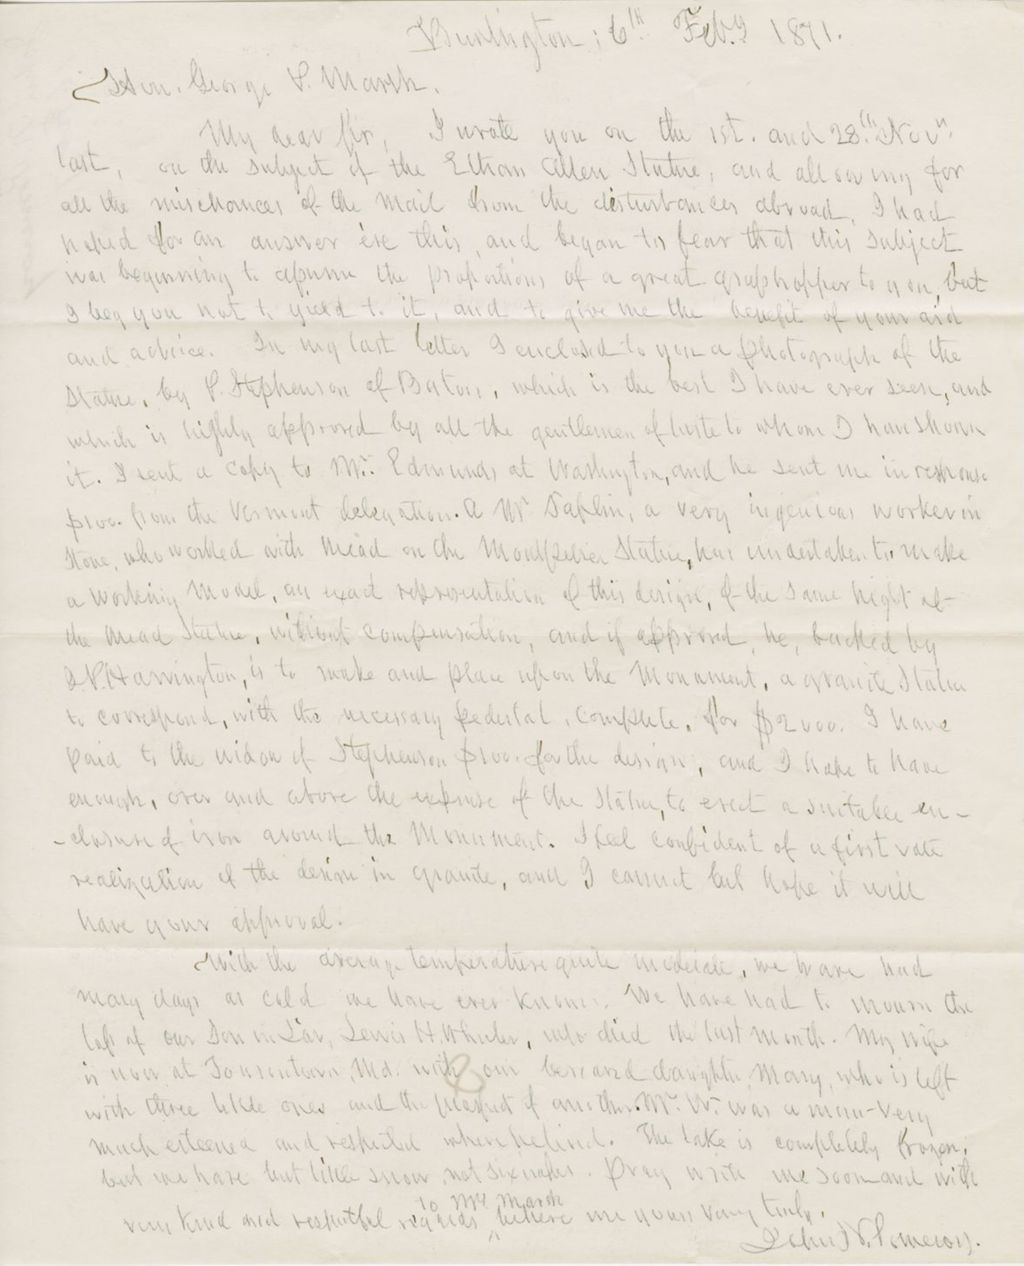 Burlington; 6th Feby 1871.
Hon. George P. Marsh.
My dear Sir, I wrote you on the 1st. and 28th Novr.
last, on the subject of the Ethan Allen Statue, and allowing for
all the mischances of the mail from the disturbances abroad, I had
hoped for an answer ere this, and began to fear that this subject
was beginning to assume the proportions of a great grasshopper to you, but
I beg you not to yield to it, and to give me the benefit of your aid
and advice. In my last letter I enclosed to you a photograph of the
Statue, by P. Stephenson of Boston, which is the best I have ever seen, and
which is highly approved by all the gentlemen of taste to whom I have shown
it. I sent a copy to Mr. Edmunds at Washington, and he sent me in response
$100. from the Vermont delegation. A Mr. Saflin, a very ingenious worker in
Stone, who worked with Mead on the Montpelier Statue, has undertaken to make
a working Model, an exact representation of this design, of the same hight of
the Mead Statue, without compensation, and if approved, he, backed by
Harrington, is to make and place upon the Monument, a granite Statue
to correspond, with the necessary pedestal, complete, for $2000. I have
paid to the widow of Stephenson $100. for the design, and I hope to have
enough, over and above the expense of the Statue, to erect a suitable en-
-closure of iron around the Monument. I feel confident of a first rate
realization of the design in granite, and I cannot but hope it will
have your approval.
With the average temperature quite moderate, we have had
many days as cold we have ever known. We have had to mourn the
loss of our Son in Law, Lewis H. Wheeler, who died the last month. My wife
is now at Towsontown, Md. with our bereaved daughter, Mary, who is left
with three little ones and the prospect of another. Mr. W. was a man very
much esteemed and respected where he lived. The lake is completely frozen,
but we have but little snow, not six inches. Pray write me soon and with
very kind and respectful regards to Mrs Marsh believe me yours very truly,
John N. Pomeroy.